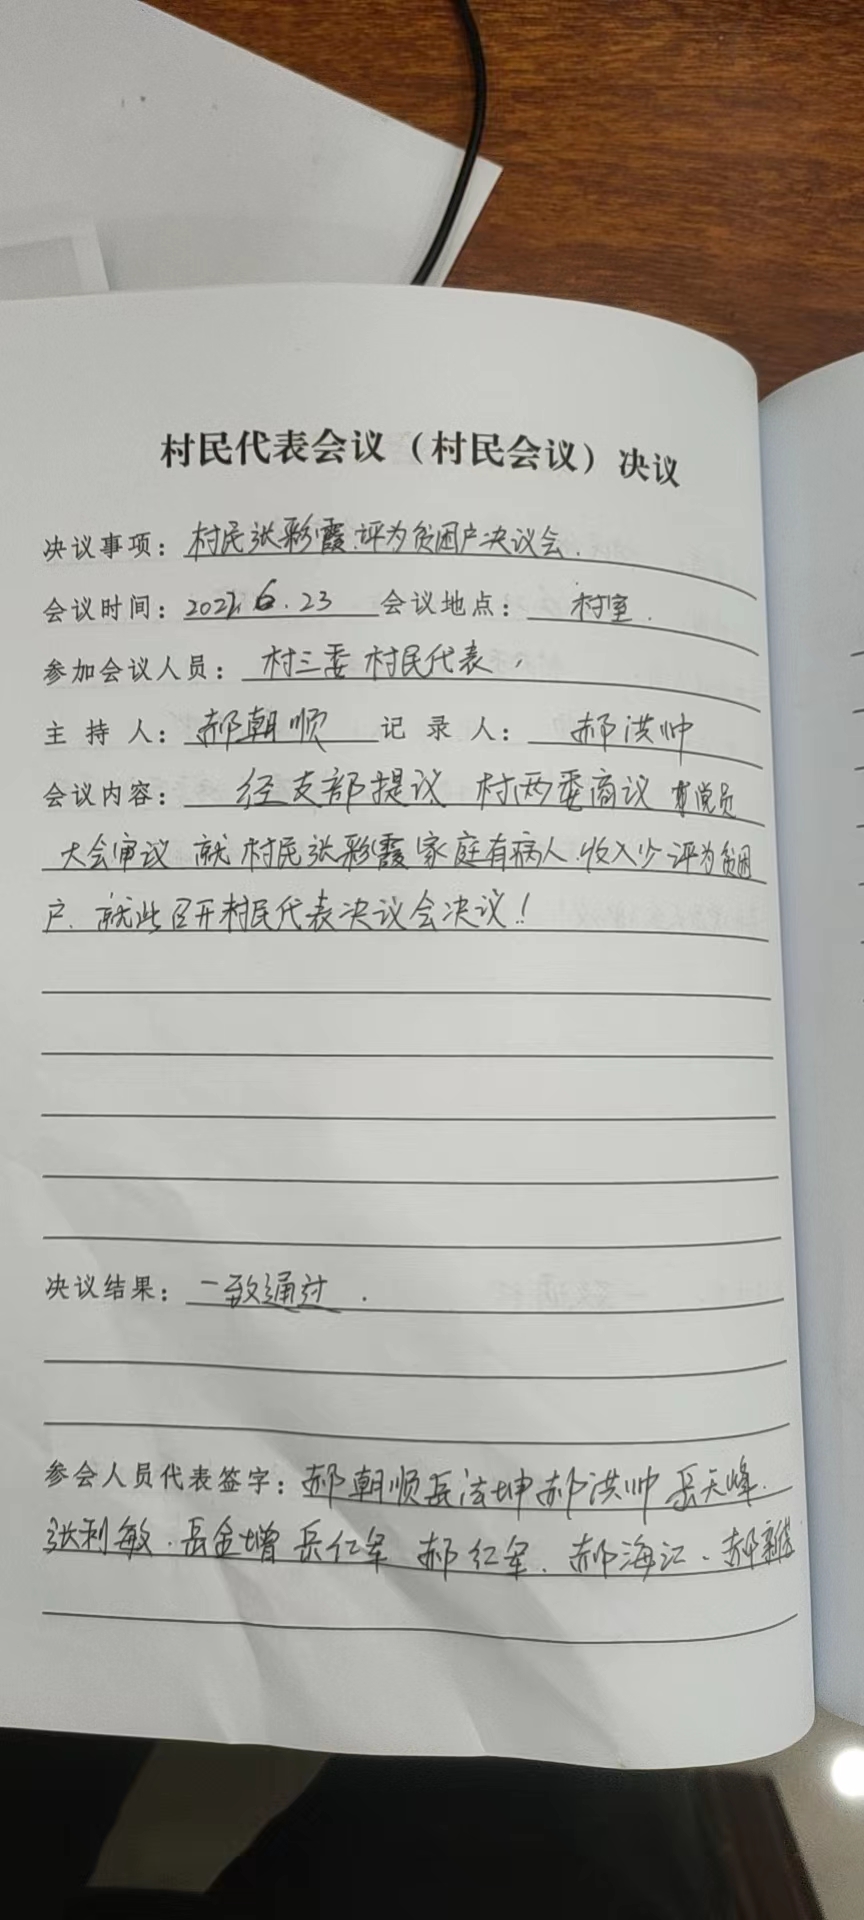 村民代表会议（村民会议）决议
决议事项：村民张彩霞评为贫困户决议会.
会议时间：2021.6.23 会议地点：村室.
参加会议人员：村三委 村民代表.
主持人：郝朝顺 记录人：郝洪帅
会议内容：经支部提议 村两委商议 党员
大会审议 就村民张彩霞家庭有病人.收入少评为贫困
户.就此召开村民代表决议会决议！
决议结果：一致通过.
参会人员代表签字：郝朝顺 岳法坤 郝洪帅 岳天峰.
张利敏.岳金增 岳仁军 郝红军.郝海江.郝